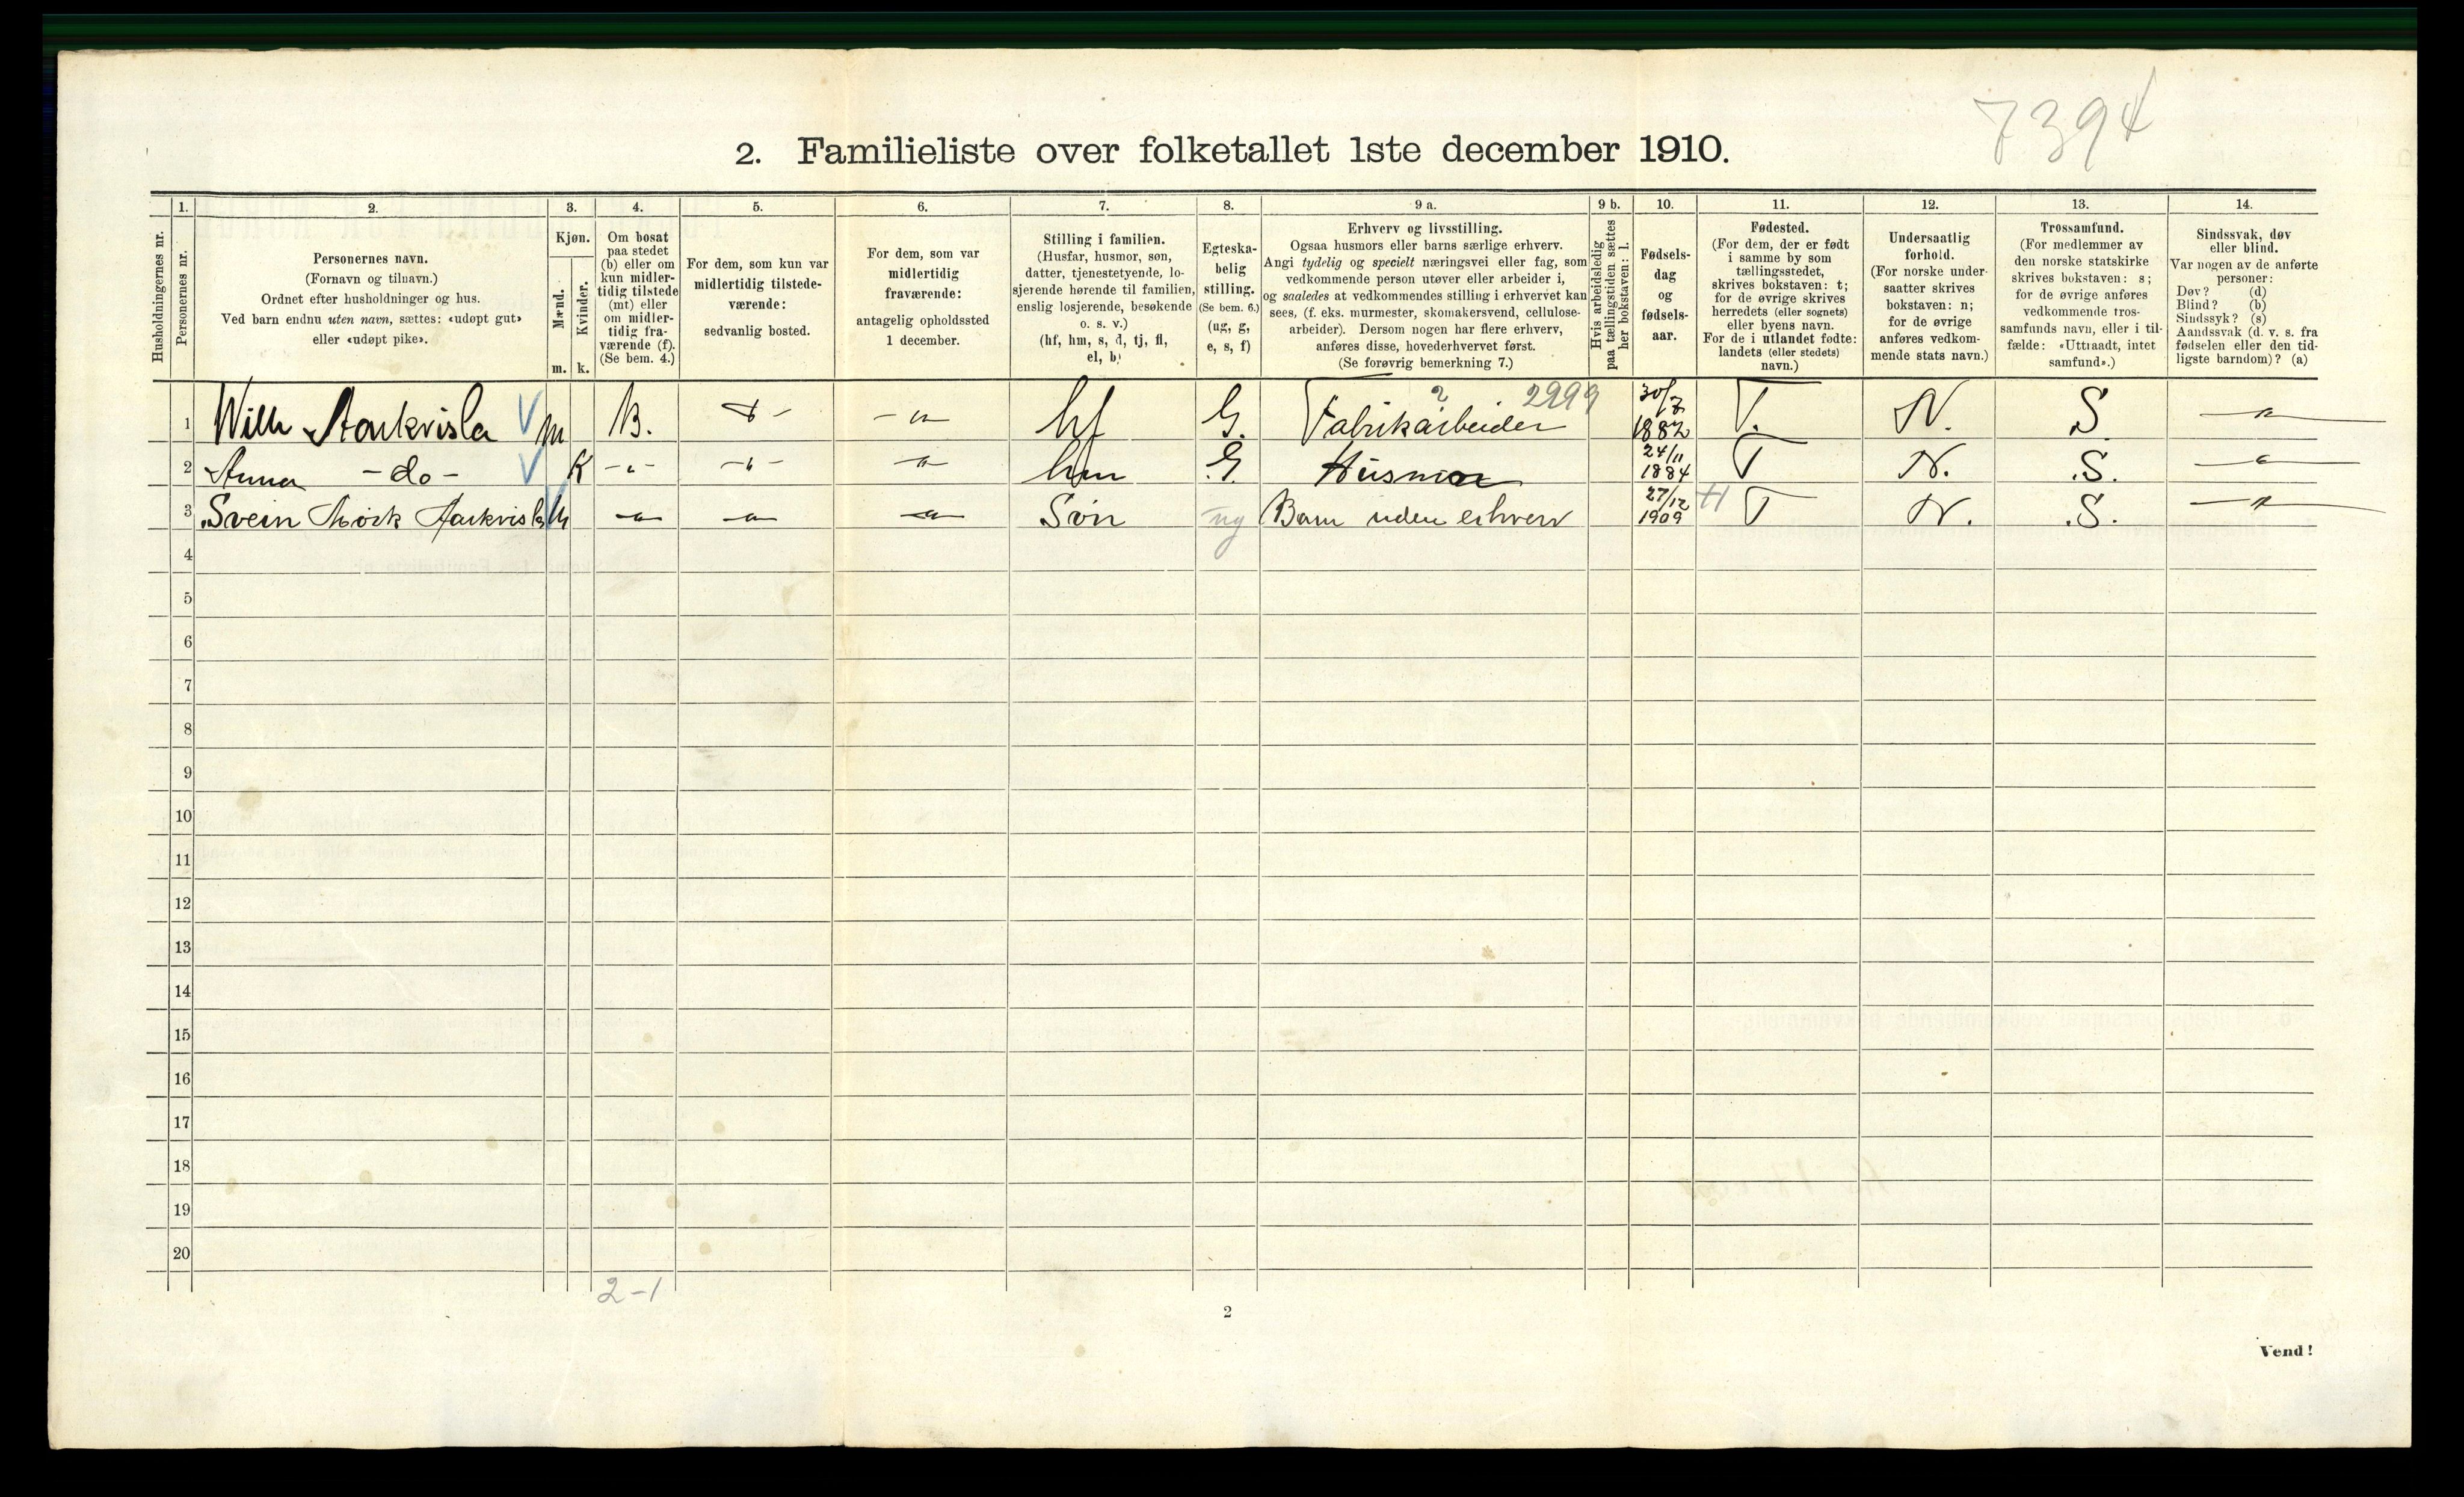 7394
2. Familieliste over folketallet 1ste december 1910.
1. 2. 3. 4. 5. 6. 7. 8. 9 a. 9 b. 10. 11. 12. 13. 14.
Husholdningernes nr.
Personernes nr.
Personernes navn.
(Fornavn og tilnavn.)
Ordnet efter husholdninger og hus.
Ved barn endnu uten navn, sættes: «udøpt gut»
eller «udøpt pike».
Kjøn.
Mænd.
Kvinder.
m. k.
Om bosat
paa stedet
(b) eller om
kun midler-
tidig tilstede
(mt) eller
om midler-
tidig fra-
værende (f).
(Se bem. 4.)
For dem, som kun var
midlertidig tilstede-
værende:
sedvanlig bosted.
For dem, som var
midlertidig
fraværende:
antagelig opholdssted
1 december.
Stilling i familien.
(Husfar, husmor, søn,
datter, tjenestetyende, lo-
sjerende hørende til familien,
enslig losjerende, besøkende
o. s. v.)
(hf, hm, s, d, tj, fl,
el, b)
Egteska-
belig
stilling.
(Se bem. 6.)
(ug, g,
e, s, f)
Erhverv og livsstilling.
Ogsaa husmors eller barns særlige erhverv.
Angi tydelig og specielt næringsvei eller fag, som
vedkommende person utøver eller arbeider i,
og saaledes at vedkommendes stilling i erhvervet kan
sees, (f. eks. murmester, skomakersvend, cellulose-
arbeider). Dersom nogen har flere erhverv,
anføres disse, hovederhvervet først.
(Se forøvrig bemerkning 7.)
Hvis arbeidsledig
paa tællingstiden sættes
her bokstaven: l.
Fødsels-
dag
og
fødsels-
aar.
Fødested.
(For dem, der er født
i samme by som
tællingsstedet,
skrives bokstaven: t;
for de øvrige skrives
herredets (eller sognets)
eller byens navn.
For de i utlandet fødte:
landets (eller stedets)
navn.)
Undersaatlig
forhold.
(For norske under-
saatter skrives
bokstaven: n;
for de øvrige
anføres vedkom-
mende stats navn.)
Trossamfund.
(For medlemmer av
den norske statskirke
skrives bokstaven: s;
for de øvrige anføres
vedkommende tros-
samfunds navn, eller i til-
fælde: «Uttraadt, intet
samfund».)
Sindssvak, døv
eller blind.
Var nogen av de anførte
personer:
Døv? (d)
Blind? (b)
Sindssyk? (s)
Aandssvak (d. v. s. fra
fødselen eller den tid-
ligste barndom)? (a)
1 Wilh Aarkvisla V m B. - " - - " - hf G. Fabrikarbeider 2 2999 30/7 1882 T. N. S. - " -
2 Anna - do - V K - " - - " - - " - hm G. Husmor 24/11 1884 T N. S. - " -
3 Svein Mørk Aarkvisla V M - " - - " - - " - Søn ug Barn uden erhverv 27/12 1909 H T N. S. - " -
4
5
6
7
8
9
10
11
12
13
14
15
16
17
18
19
20
2-1
2
Vend!